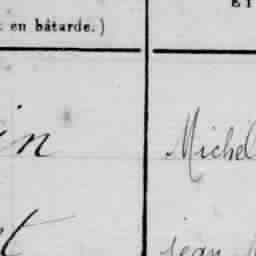 en bâtarde.)
in Michel
et jean